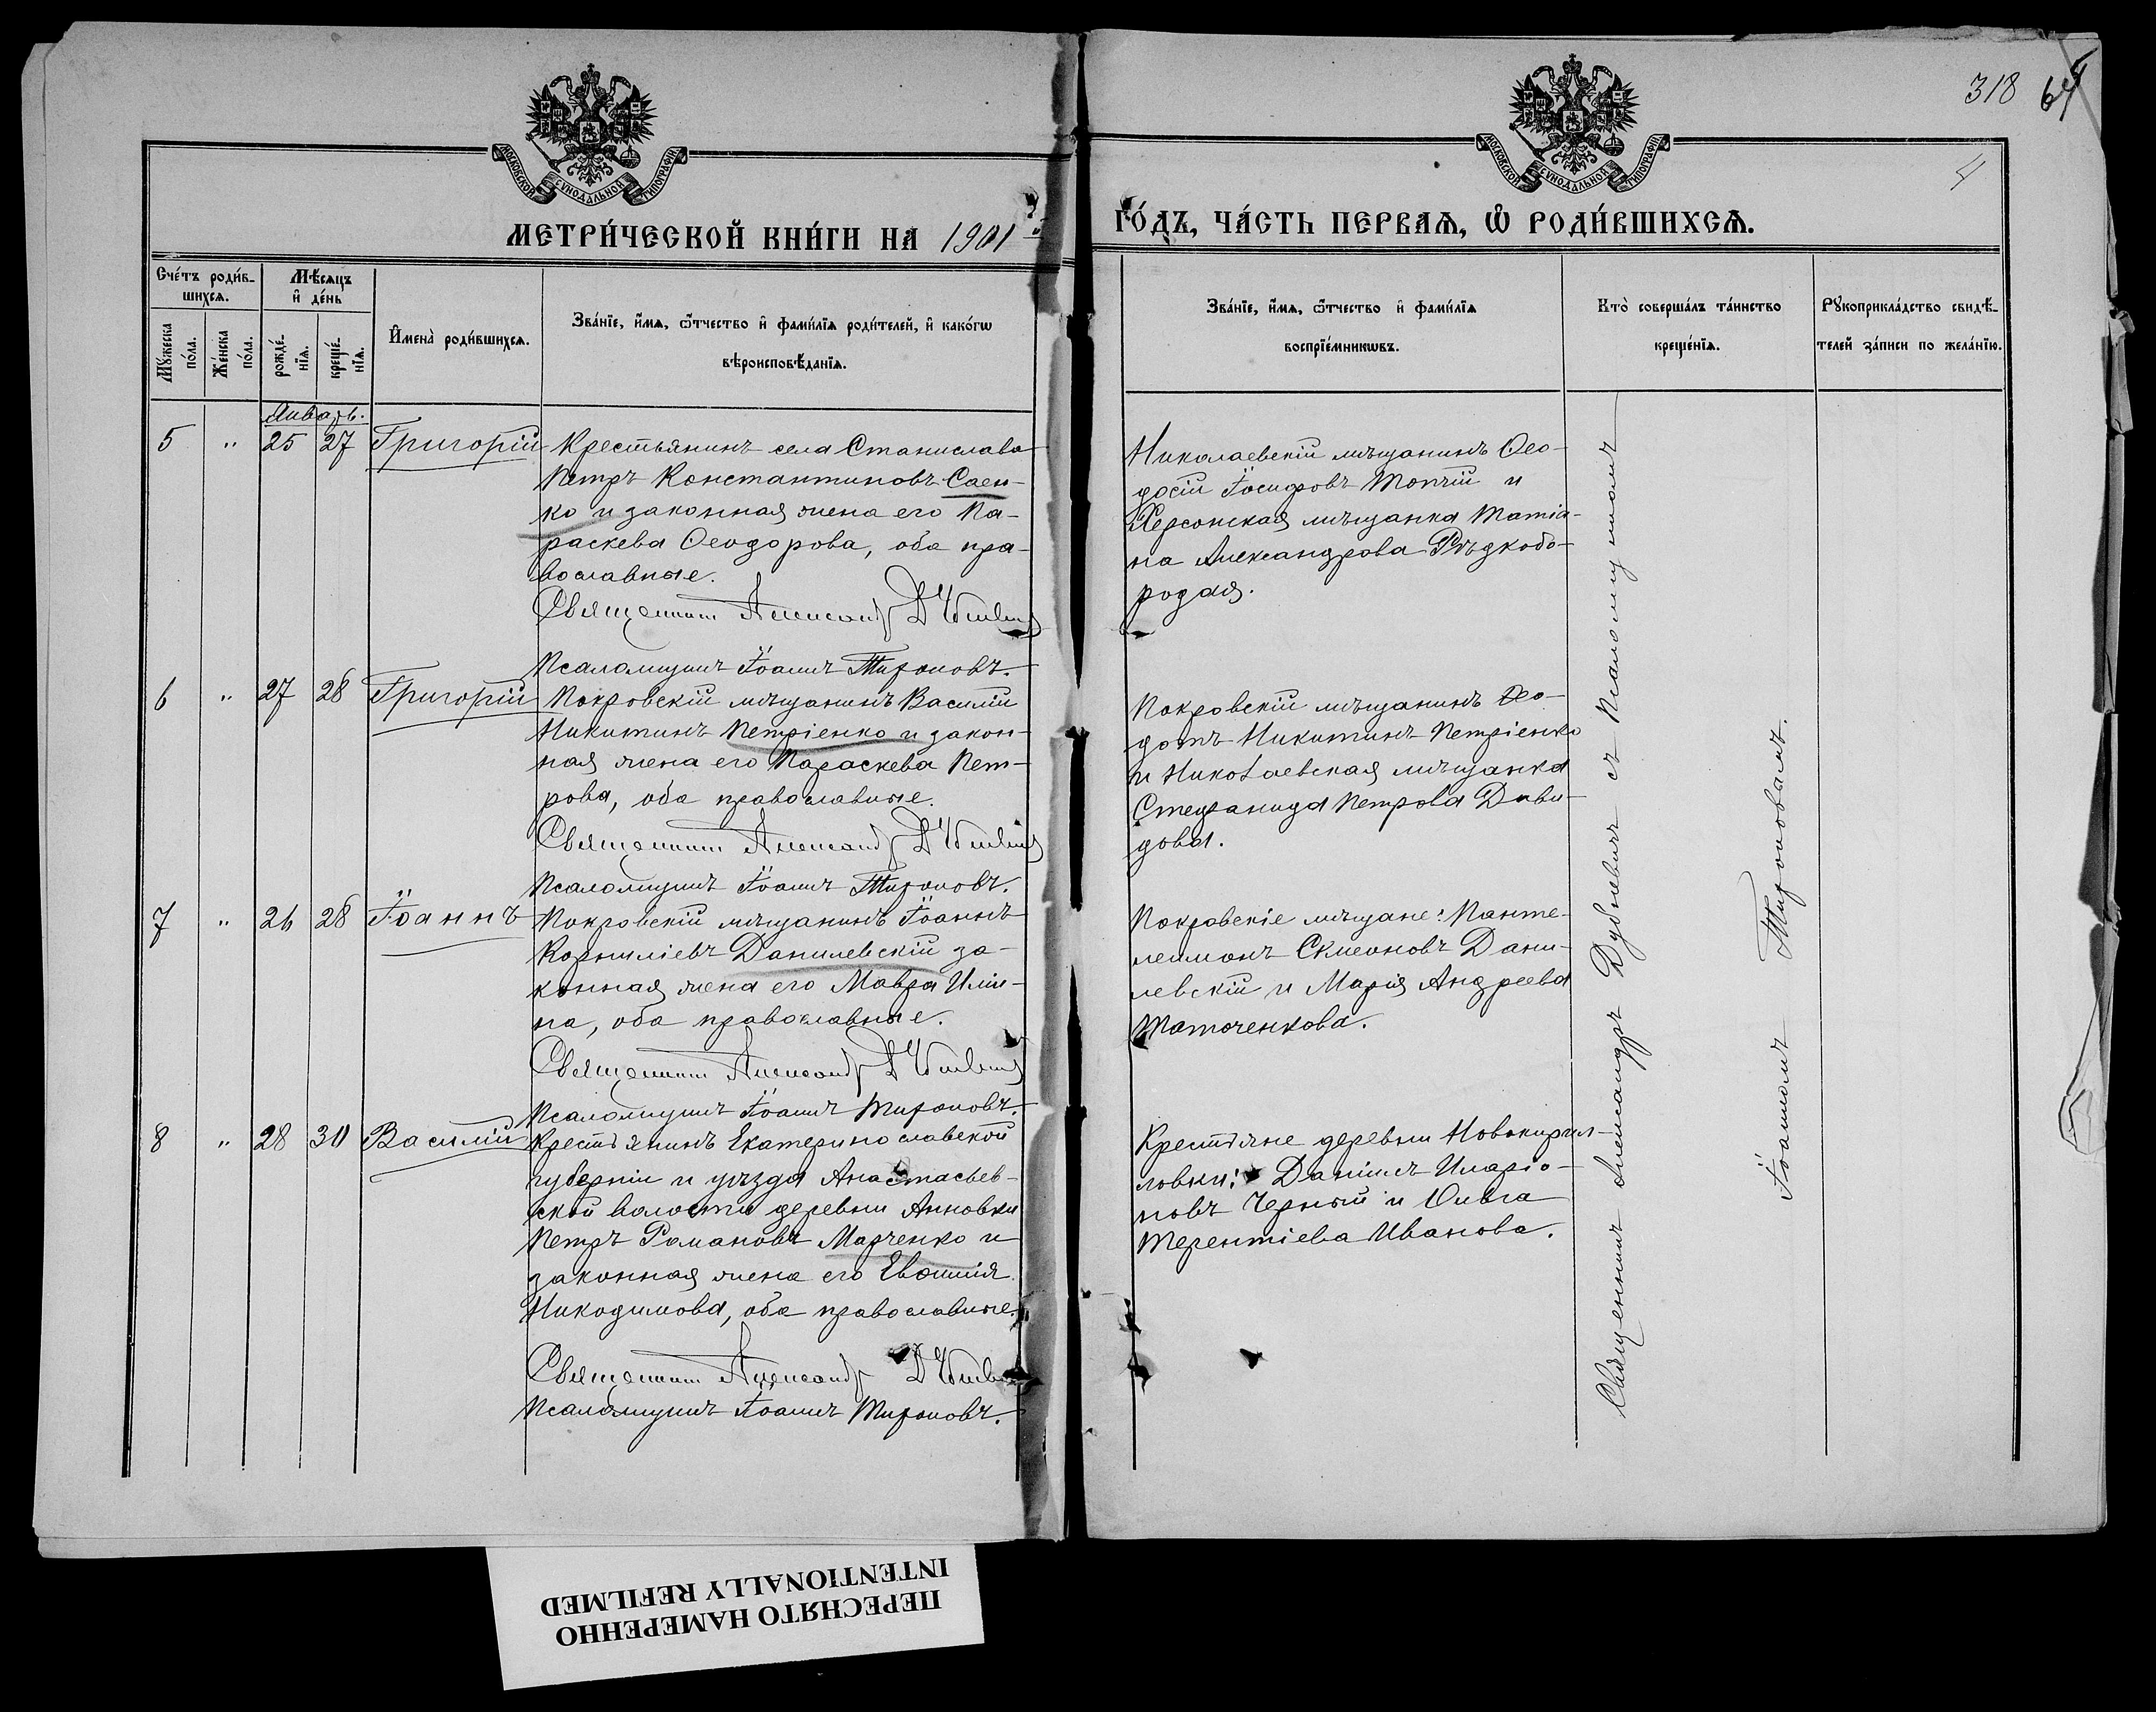 318 64
4
МОСКОВСКОЙ СѴНОДАЛЬНОЙ ТИПОГРАФІИ
МОСКОВСКОЙ СѴНОДАЛЬНОЙ ТИПОГРАФІИ
МЕТРИ́ЧЕСКОЙ КНИ́ГИ НА 1901й
ГО́ДЪ, ЧА́СТЬ ПЕРВАѦ, Ѽ РОДИ́ВШИХСѦ.
Сче́тъ роди́в-
шихсѧ.
Мꙋ́жеска
по́ла.
Же́нска
по́ла.
Мѣ́сѧцъ
и҆ де́нь
рожде́-
нїѧ.
креще́-
нїѧ.
И҆мена̀ роди́вшихсѧ.
Зва́нїе, и҆́мѧ, ѻ҆́тчество и҆ фами́лїѧ роди́телей, и҆ како́гѡ
вѣроисповѣ́данїѧ.
Зва́нїе, и҆́мѧ, ѻ҆́тчество и҆ фами́лїѧ
воспрїе́мникѡвъ.
Кто̀ соверша́лъ та́инство
креще́нїѧ.
Рꙋкоприкла́дство свидѣ́-
телей за́писи по жела́нїю.
Январь.
5 " 25 27 Григорій
Крестьянинъ села Станислава
Петръ Константиновъ Саен-
ко и законная жена его Па-
раскева Ѳеодорова, оба пра-
вославные.
Священникъ Александръ
Псаломщикъ Іоаннъ Мироновъ.
Николаевскій мѣщанинъ Ѳео-
досій Іосифовъ Топчій и
Херсонская мѣщанка Татіа-
на Александрова Рѣдкобо-
родая.
6 " 27 28 Григорій
Покровскій мѣщанинъ Василій
Никитинъ Петріенко и закон-
ная жена его Параскева Пет-
рова, оба православные.
Священникъ Александръ
Псаломщикъ Іоаннъ Мироновъ.
Покровскій мѣщанинъ Ѳео-
дотъ Никитинъ Петріенко
и Николаевская мѣщанка
Стефанида Петрова Диви-
дова.
7 " 26 28 Іоаннъ
Покровскій мѣщанинъ Іоаннъ
Корниліевъ Данилевскій за-
конная жена его Мавра Иліи-
на, оба православные.
Священникъ Александръ
Псаломщикъ Іоаннъ Мироновъ.
Покровскіе мѣщане: Панте-
леимонъ Симеоновъ Дани-
левскій и Марія Андреева
Таточенкова.
8 " 28 30 Василій
Крестьянинъ Екатеринославской
губерніи и уѣзда Анастасьев-
ской волости деревни Анновки
Петръ Романовъ Марченко и
законная жена его Евѳимія
Никодимова, оба православные.
Священникъ Александръ
Псаломщикъ Іоаннъ Мироновъ.
Крестьяне деревни Новокирил-
ловки: Даніилъ Иларіо-
новъ Черный и Ольга
Терентіева Иванова.
Священникъ Александръ Дубневичъ съ Псаломщикомъ
Іоанномъ Мироновымъ.
ПЕРЕСНЯТО НАМЕРЕННО
INTENTIONALLY REFILMED